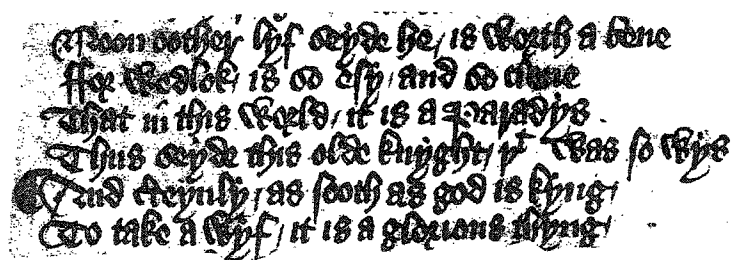 Noon oother lyf seyde he / is worth a bene
ffor wedlok / is so esy / and so clene
That in this world / it is a Paradys
Thus seyde this olde knyght / þt was so wys
And certeynly / as sooth as god is kyng
To take a wyf / it is a glorious thyng